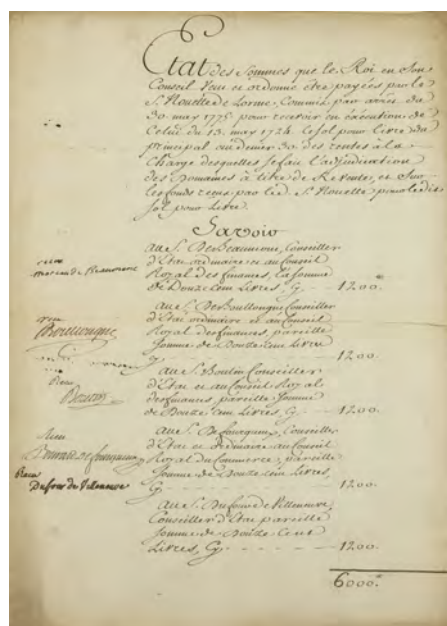 Etat des Sommes que le Roi en Son
Conseil Veut et ordonne être payées par le
S. Nouette de Lorme, Commis par arrêt du
30. may 1775 pour recevoir en execution de
Celui du 13. may 1724. le sol pour Livre du
principal au denier 30. des rentes à la
Charge desquelles se fait l'adjudication
des Domaines à titre de Revente, et Sur
les fonds reçus par led. S. Nouette pour ledit
sol pour Livre.
Savoir
au S. De Beaumont, Conseiller
d'Etat ordinaire et au Conseil
Royal des finances, la somme
de Douze Cent Livres, Cy 1200.
reçu
moreau de Beaumont
au S. De Boullongne Conseiller
d'Etat ordinaire et au Conseil
Royal des finances, pareille
Somme de Douze Cent Livres
Cy 1200.
reçu
Boullongne
au S. Boutin Conseiller
d'Etat et au Conseil Royal
des finances, pareille Somme
de Douze Cent Livres, Cy 1200.
Reçu
Boutin
au S. De fourqueux, Conseiller
d'Etat et ordinaire au Conseil
Royal du Commerce, pareille
Somme de Douze Cent Livres,
Cy 1200.
Reçu
de fourqueux
au S. Dufour de Villeneuve
Conseiller d'Etat pareille
Somme de Douze Cent
Livres, Cy 1200.
Reçu
Dufour de Villeneuve
6000.